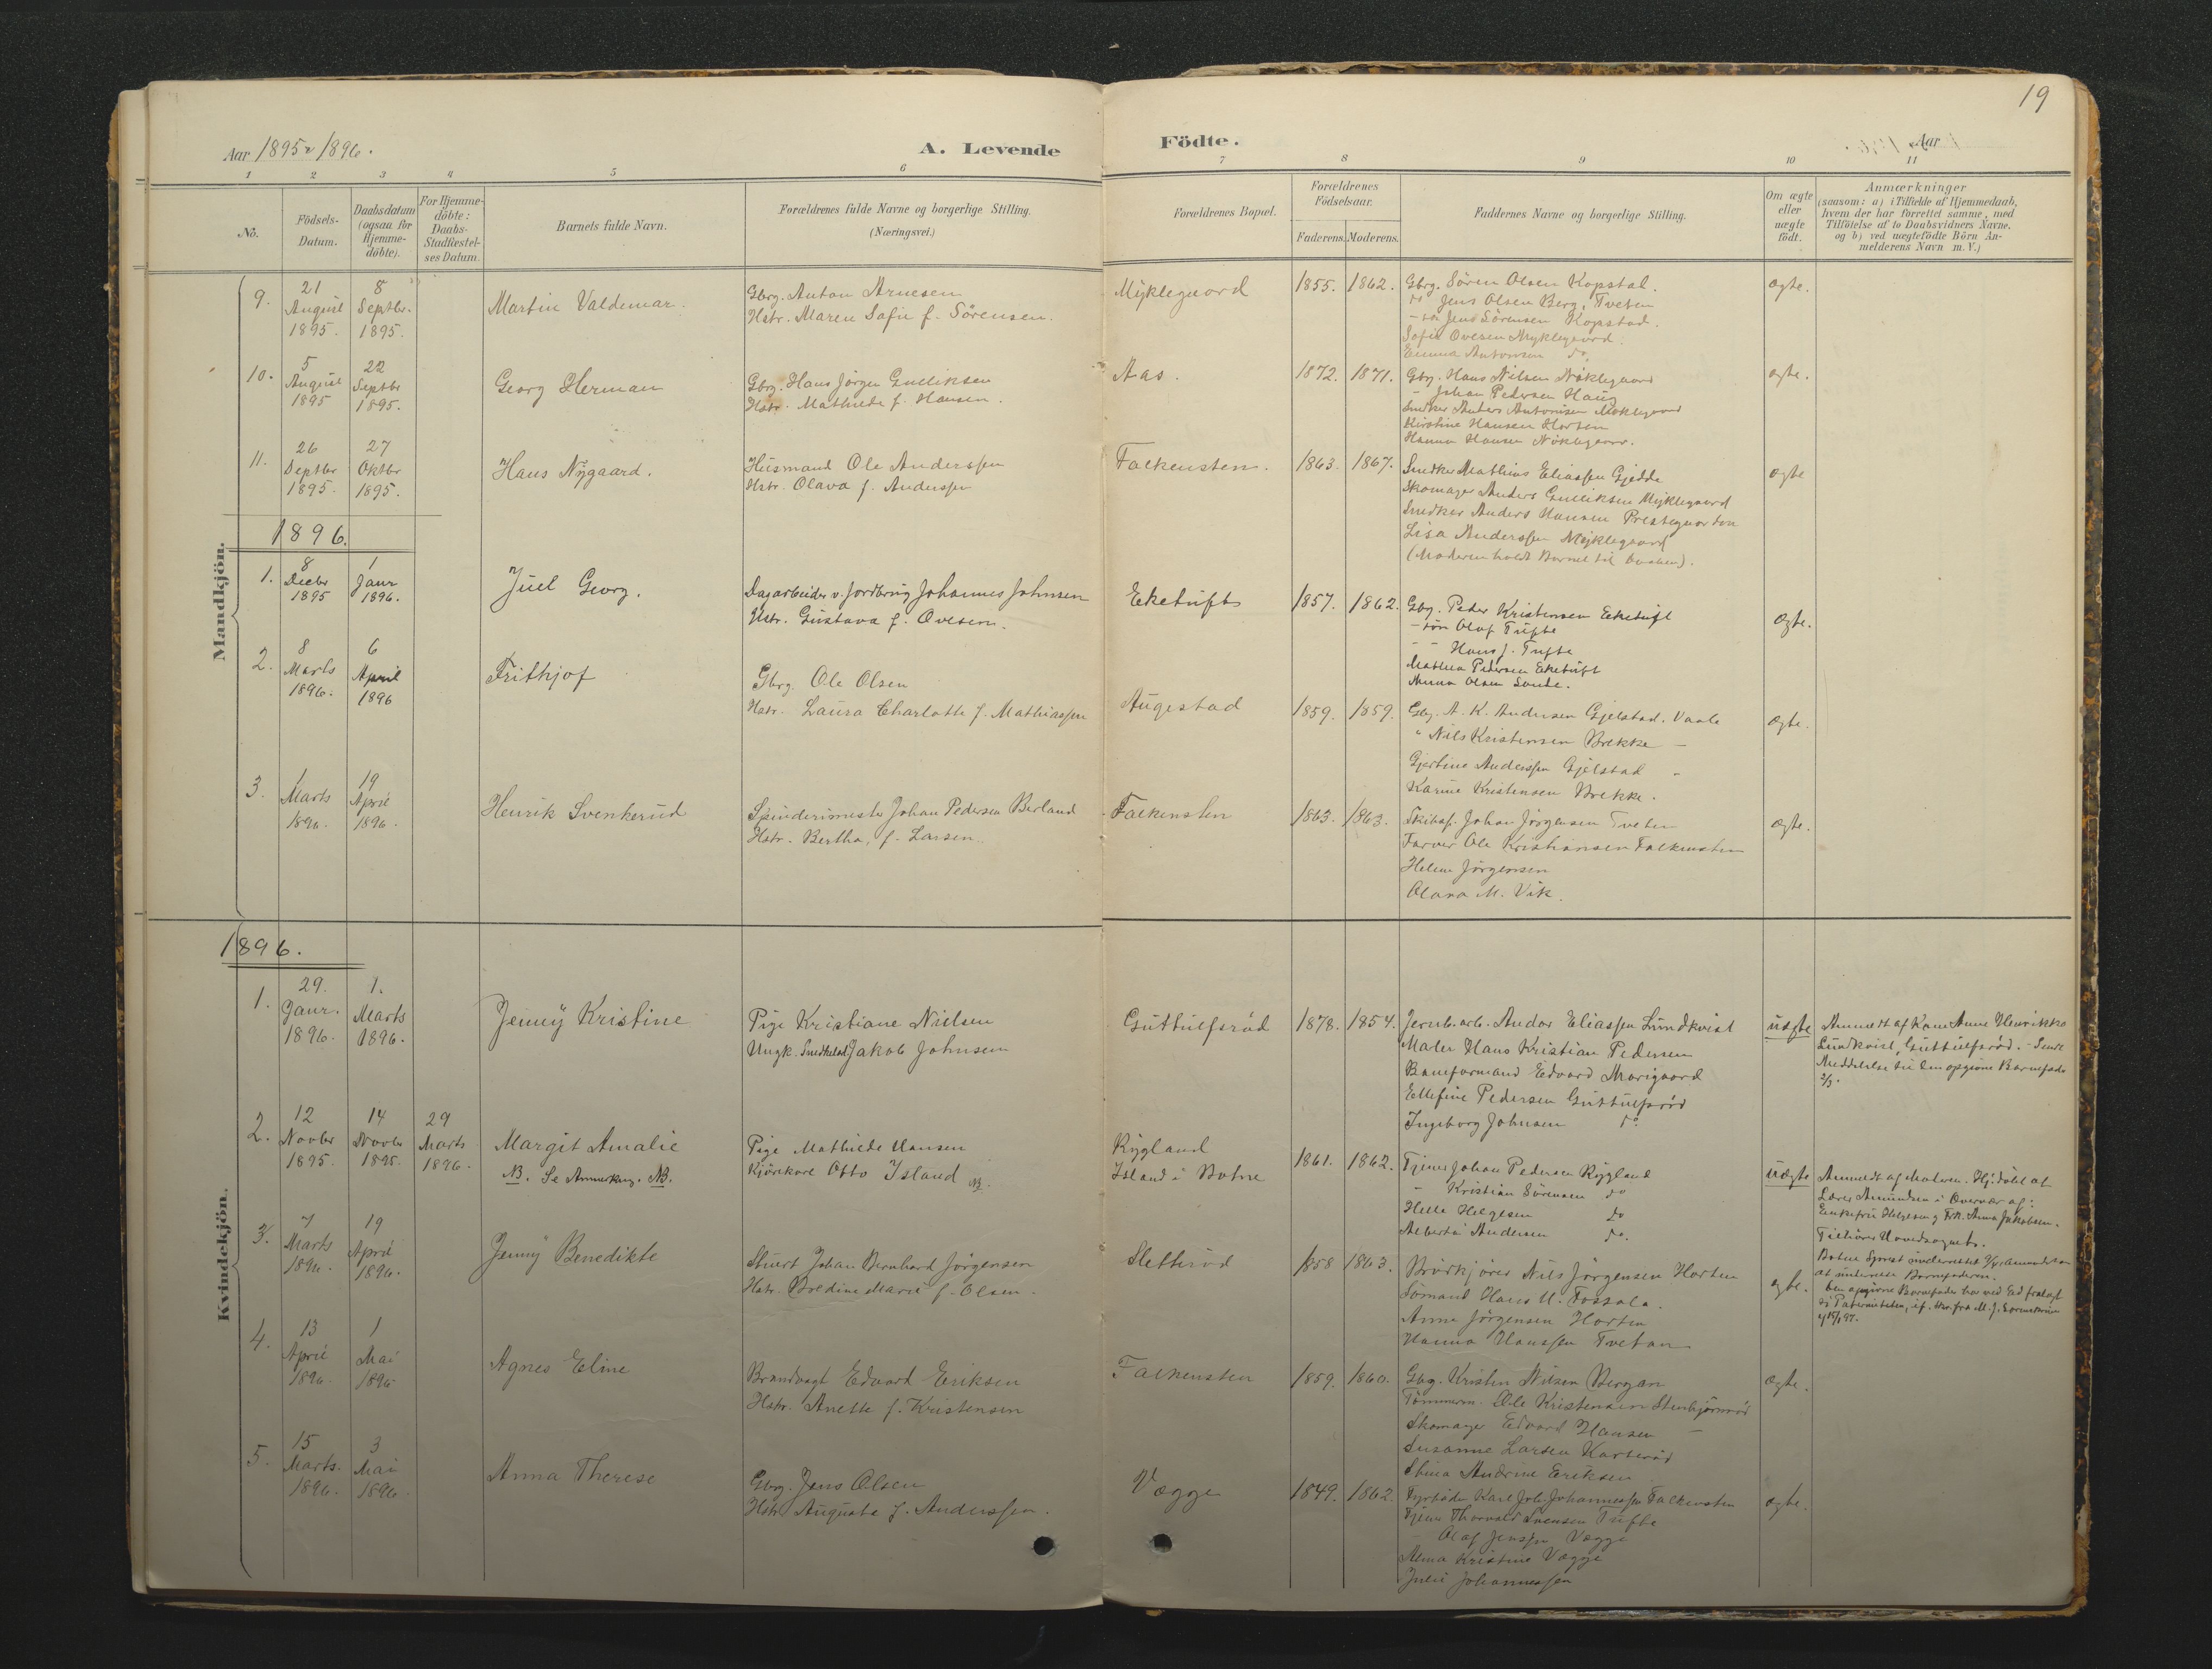 19
Aar 1895 & 1896.
A. Levende
Födte.
Aar
1 2 3 4 5 6 7 8 9 10 11
No.
Födsels-
Datum.
Daabsdatum
(ogsaa for
Hjemme-
döbte).
For Hjemme-
döbte:
Daabs-
Stadfæstel-
ses Datum.
Barnets fulde Navn.
Forældrenes fulde Navne og borgerlige Stilling.
(Næringsvei.)
Forældrenes Bopæl.
Forældrenes
Födselsaar.
Faderens. Moderens.
Faddernes Navne og borgerlige Stilling.
Om ægte
eller
uægte
født.
Anmærkninger
(saasom: a) i Tilfælde af Hjemmedaab,
hvem der har forrettet samme, med
Tilföielse af to Daabsvidners Navne.
og b) ved uægtefödte Börn An-
melderens Navn m. V.)
Mandkjön.
9.
21
August
1895.
8
Septbr.
1895.
Martin Valdemar.
Gbrg. Anton Arnesen
Hstr. Maren Sofie f. Sörensen.
Myklegaard
1855. 1862.
Gbrg. Sören Olsen Kopstad.
do Jens Olsen Berg, Tveten
Jens Sörensen Kopstad.
Sofie Ovesen Myklegaard.
Emma Antonsen do
ægte.
10.
5
August
1895
22
Septbr
1895.
Georg Herman
Gbrg. Hans Jörgen Gulliksen
Hstr. Mathilde f. Hansen.
Aas.
1872. 1871.
Gbrg. Hans Nilsen Nöklegaard
- Johan Pedersen Haug
Snedker Anders Antonisen Myklegaard
Kirstine Hansen Horten
Hanna Hansen Nöklegaard.
ægte.
11.
26
Septbr
1895.
27
Oktbr
1895.
Hans Nygaard.
Husmand Ole Anderssen
Hstr. Olava f. Anderssen
Falkensten.
1863. 1867.
Snedker Mathias Eliassen Gjedde
Skomager Anders Gulliksen Myklegaard
Snedker Anders Hansen Prestegaarden
Lisa Anderssen Myklegaard
(Moderen holdt Barnet til Daaben).
ægte
1896.
1.
8
Decbr
1895
1
Janr
1896.
Juel Georg.
Dagarbeider v. Jordbrug Johannes Johnsen
Hstr. Gustava f. Ovesen.
Eketuft
1857. 1862.
Gbg. Peder Kristensen Eketuft
- sön Olaf Tufte
- - Hans J. Tufte
Mathea Pedersen Eketuft
Anna Olsen Sande.
ægte.
2.
8
Marts
1896.
6
April
1896
Frithjof
Gbrg. Ole Olsen
Hstr. Laura Charlotte f. Mathiassen
Augestad
1859. 1859.
Gbg. A. K. Andersen Gjelstad. Vaale
" Nils Kristensen Brekke -
Gjertine Anderssen Gjelstad -
Karine Kristensen Brekke.
ægte.
3.
1
Marts
1896.
19
April
1896.
Henrik Svenkerud
Spinderimester Johan Pedersen Berland
Hstr. Bertha, f. Larsen.
Falkensten
1863. 1863.
Skibsf. Johan Jörgensen Tveten
Farver Ole Kristiansen Falkensten
Helene Jörgensen
Olava M. Vik.
ægte.
Kvindekjön.
1896.
1.
29.
Janr.
1896.
1.
Marts
1896.
Jenny Kristine
Pige Kristiane Nielsen
Ungk. Snedkerl. Jakob Johnsen
Guttulfsröd
1878. 1854.
Jernb.arb. Andor Eliassen Lundkvist
Maler Hans Kristian Pedersen
Baneformand Edvard Marigaard
Ellefine Pedersen Guttulfsröd
Ingeborg Johnsen do
uægte
Anmeldt af Kone Anne Henrikke
Lundkvist, Guttulfsröd. - Sendt
Meddelelse til den opgivne Barnefader
2/3.
2.
12
Novbr
1895.
14
Novbr
1895.
29
Marts
1896.
Margit Amalie
NB. Se Anmerkng. NB.
Pige Mathilde Hansen
Kjörekarl Otto Island NB.
Rygland
Island i Botne
1861. 1862.
Tjener Johan Pedersen Rygland
- Kristian Sörensen do
Helle Helgesen do
Alberta Andersen do.
uægte
Anmeldt af Moderen. Hj. döbt af
Lærer Amundsen i Overvær af:
Enkefru Helgesen og Frk. Anna Jakobsen.
Tilhörer Hovedsognet.
at underrette Barnefaderen.
Den opgivne Barnefader har ved Ed fralagt
3.
7
Marts
1896.
19
April
1896.
Jenny Benedikte
Stuert Johan Bernhard Jörgensen
Hstr. Bredine Marie f. Olsen.
Sletteröd
1858 1863.
Brödkjörer Nils Jörgensen Horten
Sömand Hans U. Fossala.
Anna Jörgensen Horten
Hanna Hanssen Tvetan
ægte.
4.
13
April
1896.
1
Mai
1896
Agnes Eline
Brandvagt Edvard Eriksen
Hstr. Anette f. Kristensen
Falkensten
1859. 1860.
Gbg. Kristen Nilsen Bergan
Tömmerm. Ole Kristensen Stenbjörnröd
Skomager Edvard Hansen -
Susanne Larsen Karteröd
Stina Andrine Eriksen
ægte.
5.
15
Marts.
1896.
3
Mai
1896.
Anna Therese
Gbrg. Jens Olsen
Hstr. Augusta f. Anderssen.
Vægge
1849. 1862.
Fyrböder Karl Joh. Johannessen Falkensten
Tjener Thorvald Svensen Tufte
- Olaf Jenssen Vægge
Alma Kristine Vægge
Julie Johannessen
ægte.